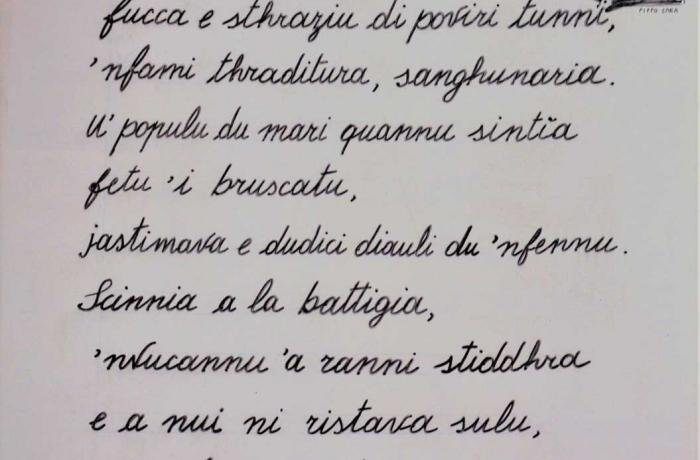 fucca e sthraziu di poviri tunni,
PIPPO CARA
'nfami thraditura, sanghunaria.
U' populu du mari quannu sintĭa
fetu 'i bruscatu,
jastimava e dudici diauli du 'nfennu.
Scinnia a la battigia,
'nvucannu 'a ranni stiddhra
e a nui ni ristava sulu,